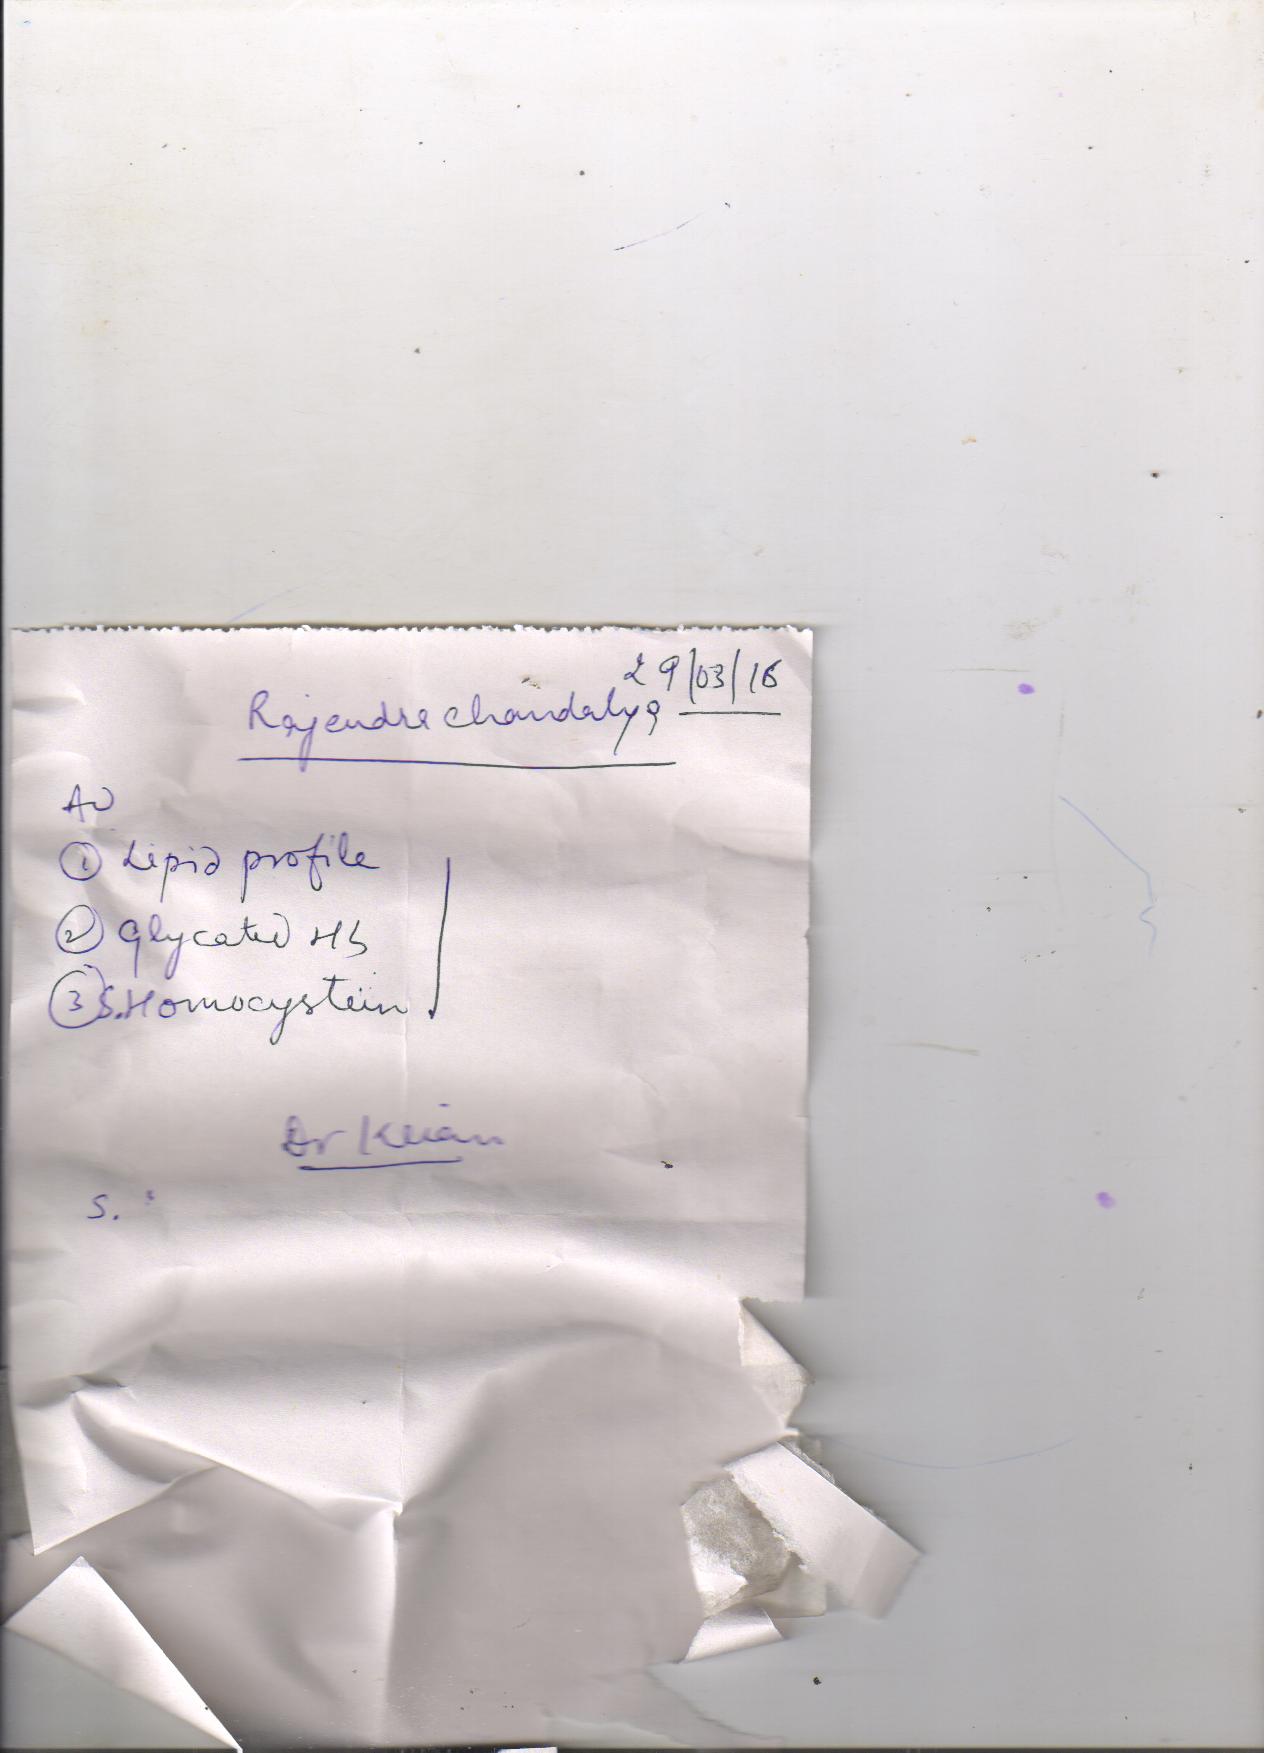 29/03/16
Rajendra Chandalya
Av
① Lipid profile
② Glycated Hb
③ S. Homocystein
Dr Kiran
S.